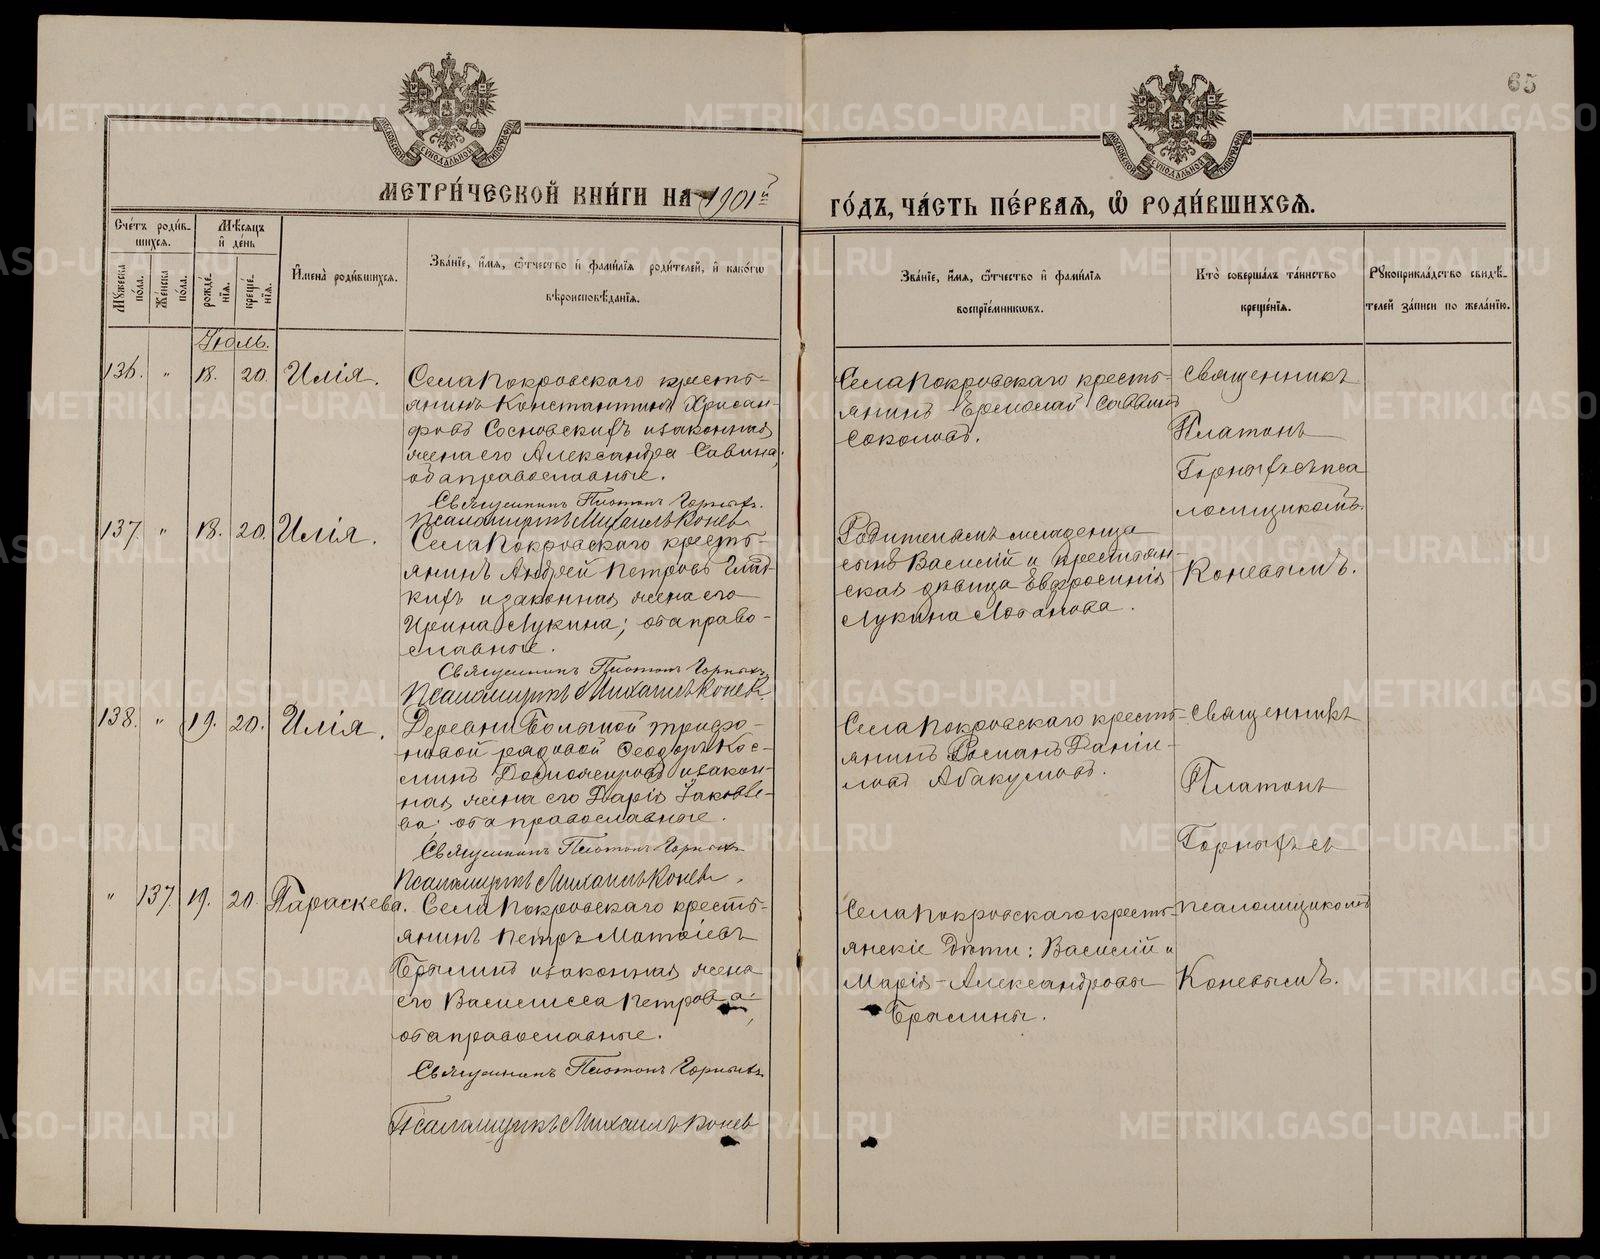 65
МОСКОВСКОЙ СѴНОДАЛЬНОЙ ТИПОГРАФІИ
МОСКОВСКОЙ СѴНОДАЛЬНОЙ ТИПОГРАФІИ
МЕТРИ́ЧЕСКОЙ КНИ́ГИ НА 1901й ГО́ДЪ, ЧА́СТЬ ПЕ́РВАѦ, Ѽ РОДИ́ВШИХСѦ.
Сче́тъ роди́в-
шихсѧ.
Мѣ́сѧцъ
и҆ де́нь
Му́жеска
по́ла.
Же́нска
по́ла.
рожде́-
нїѧ.
креще́-
нїѧ.
И҆мена̀ роди́вшихсѧ.
Зва́нїе, и҆́мѧ, ѻ҆́тчество и҆ фами́лїѧ роди́телей, и҆ како́гѡ
вѣроисповѣ́данїѧ.
Зва́нїе, и҆́мѧ, ѻ҆́тчество и҆ фами́лїѧ
воспрїе́мникѡвъ.
Кто̀ соверша́лъ та́инство
креще́нїѧ.
Рꙋкоприкла́дство свидѣ́-
телей за́писи по жела́нїю.
Іюль.
136. " 18. 20. Илія.
Села Покровскаго кресть-
янинъ Константинъ Хрисан-
фовъ Сосновскихъ и законная
жена его Александра Савина;
оба православные.
Священникъ Платонъ Горныхъ.
Псаломщикъ Михаилъ Коневъ
Села Покровскаго кресть-
янинъ Ермолай Саввинъ
Соколовъ.
Священникъ
Платонъ
Горныхъ съ пса
ломщикомъ
Коневымъ.
137. " 18. 20. Илія.
Села Покровскаго кресть-
янинъ Андрей Петровъ Глад-
кихъ и законная жена его
Ирина Лукина; оба право-
славные.
Священникъ Платонъ Горныхъ
Псаломщикъ Михаилъ Коневъ.
Родительскъ младенца
сынъ Василій и крестьян-
ская дѣвица Евфросинія
Лукина Лобанова.
138. " 19. 20. Илія.
Деревни Большой Трифо-
новой рядовой Ѳеодоръ Кос-
минъ и закон-
ная жена его Дарія Іаковле-
ва; оба православные.
Священникъ Платонъ Горныхъ
Псаломщикъ Михаилъ Коневъ.
Села Покровскаго кресть-
янинъ Романъ Даніи-
ловъ Абакумовъ.
Священникъ
Платонъ
Горныхъ съ
псаломщикомъ
Коневымъ.
" 137. 19. 20. Параскева.
Села Покровскаго кресть-
янинъ Петръ Матѳіевъ
Брылинъ и законная жена
его Василисса Петрова;
оба православные.
Священникъ Платонъ Горныхъ
Псаломщикъ Михаилъ Коневъ
Села Покровскаго кресть-
янскіе дѣти: Василій и
Марія Александровы
Брылины.
METRIKI.GASO-URAL.RU